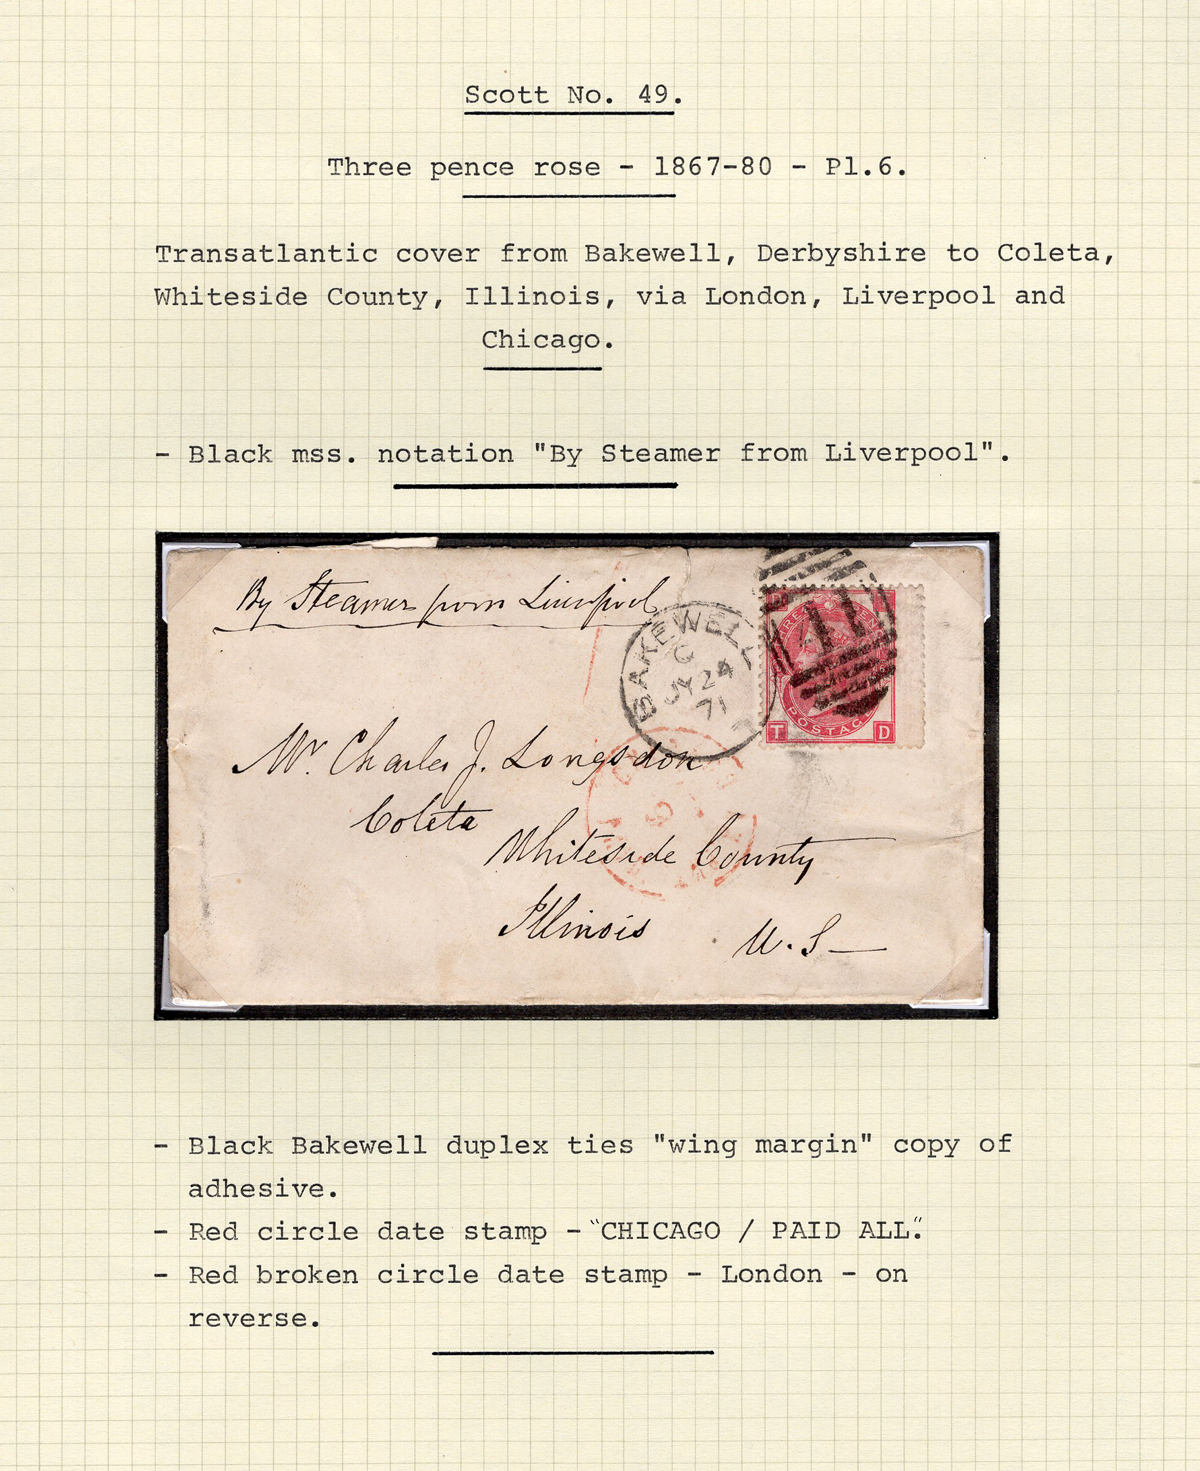 Scott No. 49.
Three pence rose - 1867-80 - Pl.6.
Transatlantic cover from Bakewell, Derbyshire to Coleta,
Whiteside County, Illinois, via London, Liverpool and
Chicago.
- Black mss. notation "By Steamer from Liverpool".
By Steamer from Liverpool
BAKEWELL
G
JY 24
71
POSTAG
T D
Mr. Charles J. Longsdon
Coleta
Whiteside County
Illinois
U.S—
- Black Bakewell duplex ties "wing margin" copy of
adhesive.
- Red circle date stamp - "CHICAGO / PAID ALL".
- Red broken circle date stamp - London - on
reverse.